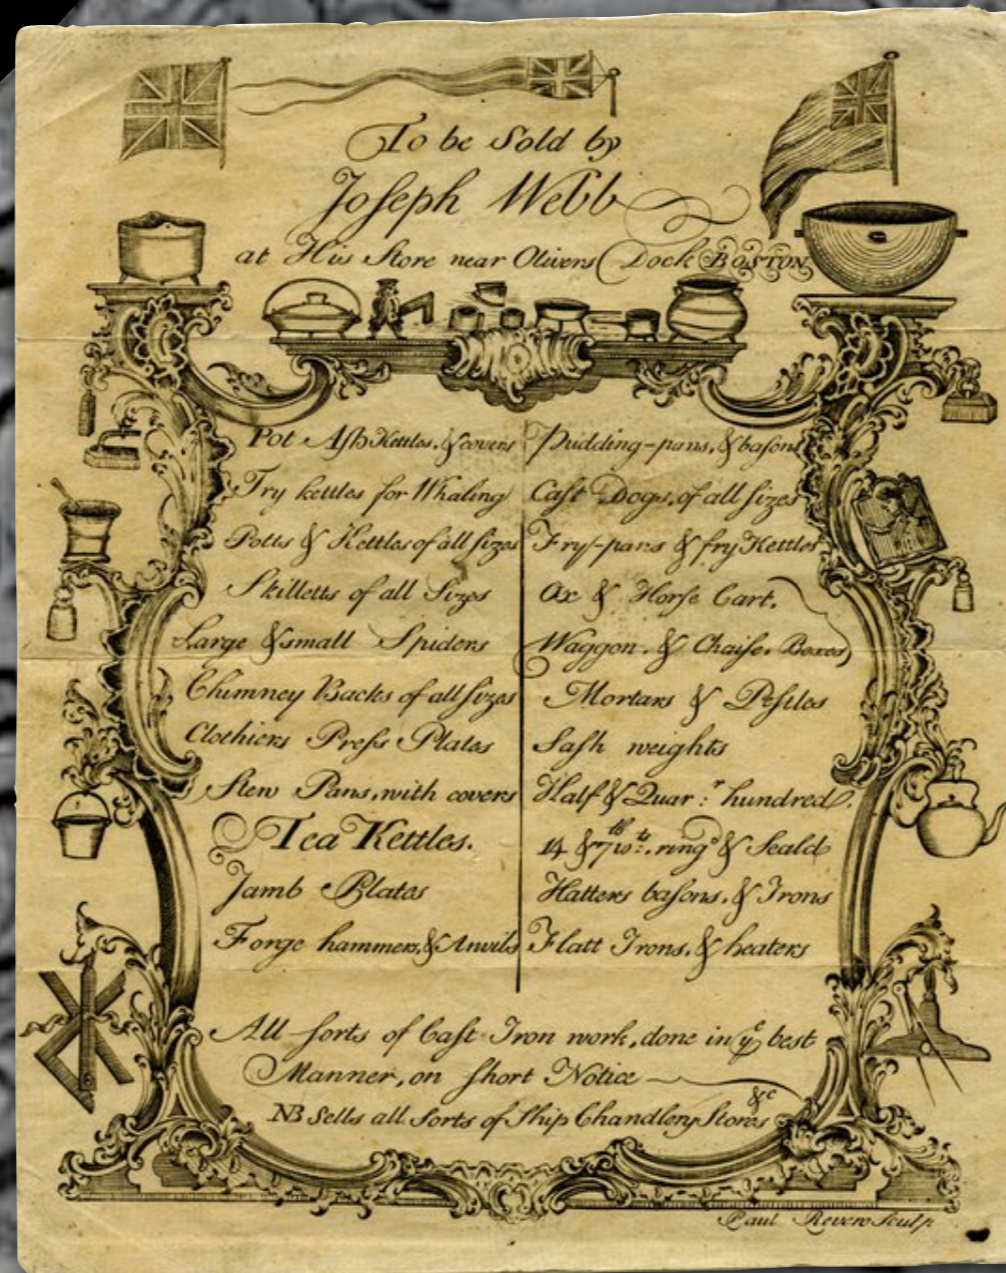 To be Sold by
Joſeph Webb
at His Store near Olivers Dock BOSTON
Pot Aſh Kettles, & covers
Try kettles for Whaling
Potts & Kettles of all ſizes
Skilletts of all Sizes
Large & small Spiders
Chimney Backs of all ſizes
Clothiers Preſs Plates
Stew Pans, with covers
Tea Kettles.
Jamb Plates
Forge hammers, & Anvils
Pudding-pans, & baſons
Caſt Dogs, of all ſizes
Fry-pans & fry Kettles
Ox & Horſe Cart,
Waggon, & Chaiſe, Boxes
Mortars & Peſtles
Saſh weights
Half & Quar:r hundred,
14 & 7th wts. ring'd & Seald
Hatters baſons, & Irons
Flatt Irons, & heaters
All ſorts of Caſt Iron work, done in ye best
Manner, on ſhort Notice
NB Sells all Sorts of Ship Chandlery Stores &c
Paul Revere Sculp